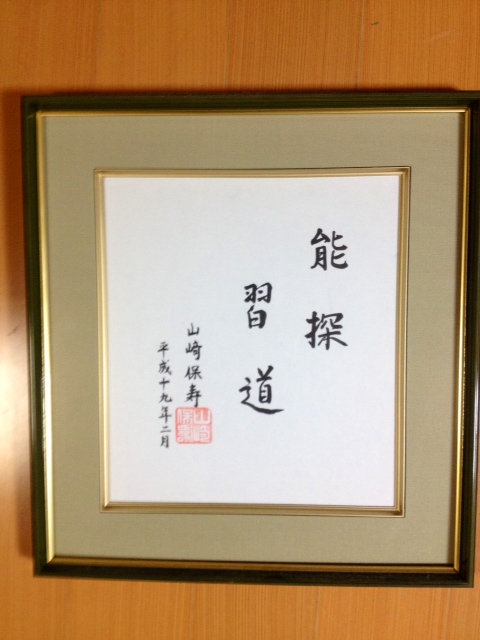 能探
習道
山崎保寿
平成十九年二月
山崎
保寿